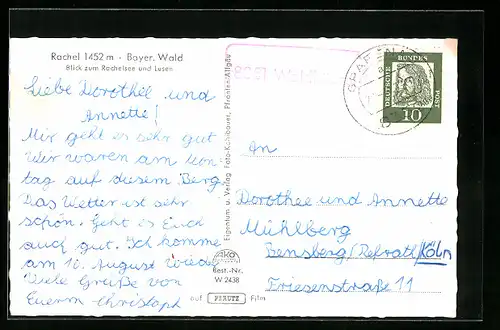 Rachel 1452 m - Bayer. Wald
Blick zum Rachelsee und Lusen
Liebe Dorothee und
Annette!
Mir geht es sehr gut
Wir waren am Mon-
tag auf diesem Berg.
Das Wetter ist sehr
schön. Geht es Euch
auch gut. Ich komme
am 10. August wieder
Viele Grüße von
Euerm Christoph
Eigentum u. Verlag Foto-Kohlbauer, Pfronten/Allgäu
Best.-Nr.
W 2438
auf PERUTZ Film
DEUTSCHE BUNDES POST
10
An
Dorothee und Annette
Mühlberg
Bensberg/Refrath/Köln
Friesenstraße 11